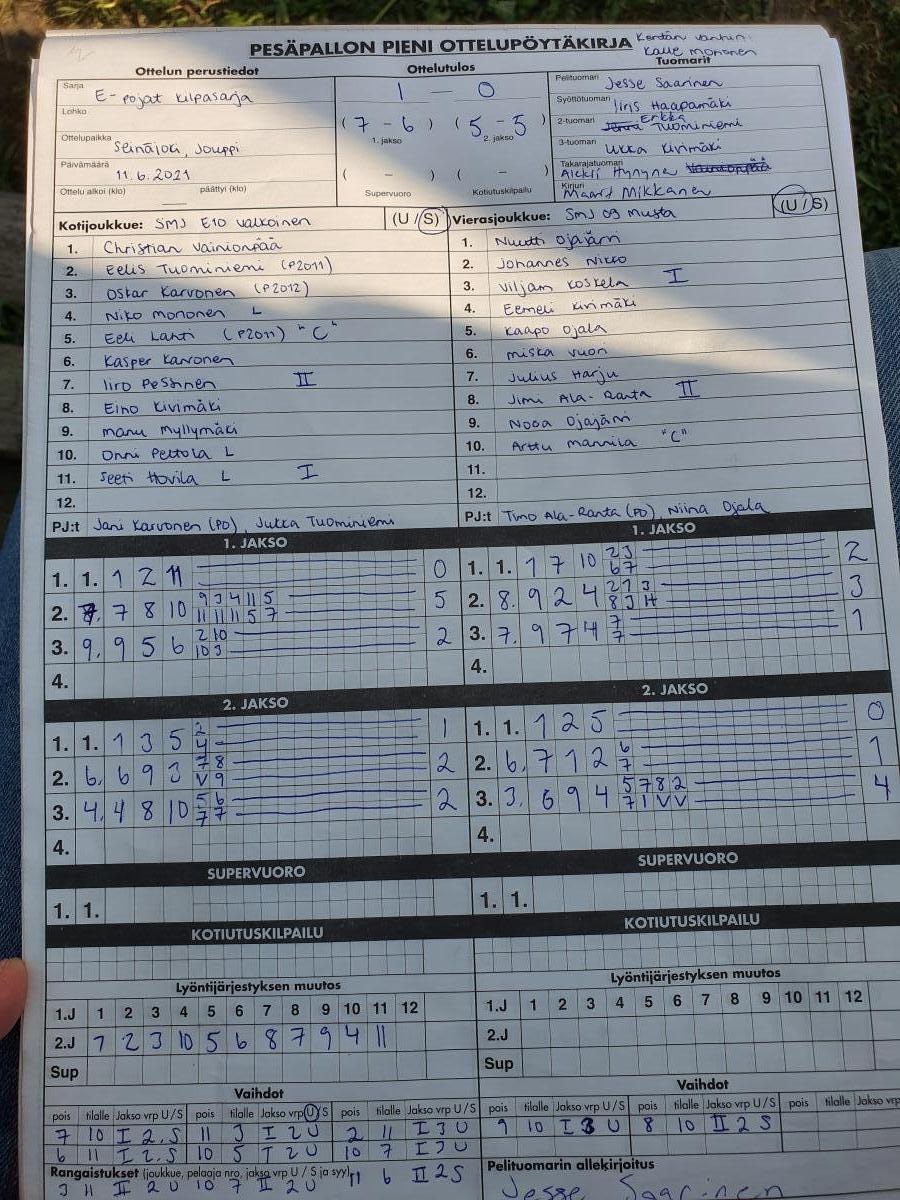 PESÄPALLON PIENI OTTELUPÖYTÄKIRJA
Kentän vanhin:
Kalle Mononen
Ottelun perustiedot
Sarja E-pojat kilpasarja
Lohko
Ottelupaikka Seinäjoki, Jouppi
Päivämäärä 11.6.2021
Ottelu alkoi (klo) päättyi (klo)
Ottelutulos
1 – 0
(7 – 6) (5 – 5)
1. jakso 2. jakso
( – ) ( – )
Supervuoro Kotiutuskilpailu
Tuomarit
Pelituomari Jesse Saarinen
Syöttötuomari Iiris Haapamäki
2-tuomari Erkka Tuominiemi
3-tuomari Ukka Kivimäki
Takarajatuomari
Kirjuri Maarit Mikkanen
Kotijoukkue: SMJ E10 valkoinen (U / S)
1. Christian Vainionpää
2. Eelis Tuominiemi (P2011)
3. Oskar Karvonen (P2012)
4. Niko Mononen L
5. Eeli Lahti (P2011) "C"
6. Kasper Karvonen
7. Iiro Peshnen II
8. Eino Kivimäki
9. Manu Myllymäki
10. Onni Peltola L
11. Seeti Hovila L I
12.
PJ:t Jani Karvonen (PJ), Jukka Tuominiemi
Vierasjoukkue: SMJ 09 musta (U / S)
1. Nuutti Ojajärvi
2. Johannes Nikko
3. Viljam Koskela I
4. Eemeli Kivimäki
5. Kaapo Ojala
6. Miska Vuori
7. Julius Harju
8. Jimi Ala-Ranta II
9. Nooa Ojajärvi
10. Arttu Mannila "C"
11.
12.
PJ:t Timo Ala-Ranta (PJ), Niina Ojala
1. JAKSO
1. 1. 1 2 11 0
2. 7. 7 8 10 9 3 4 11 5 5
11 11 11 5 7
3. 9. 9 5 6 2 10 2
10 3
4.
1. JAKSO
1. 1. 1 7 10 2 3 2
6 7
2. 8. 9 2 4 2 7 3 3
8
3. 7. 9 7 4 7 1
7
4.
2. JAKSO
1. 1. 1 3 5 2 1
4
2. 6. 6 9 3 7 8 2
V 9
3. 4. 4 8 10 5 6 2
7 7
4.
2. JAKSO
1. 1. 1 2 5 0
2. 6. 7 1 2 6 1
7
3. 3. 6 9 4 5 7 8 2 4
7 1 V V
4.
SUPERVUORO
1. 1.
SUPERVUORO
1. 1.
KOTIUTUSKILPAILU
KOTIUTUSKILPAILU
Lyöntijärjestyksen muutos
1.J 1 2 3 4 5 6 7 8 9 10 11 12
2.J 1 2 3 10 5 6 8 7 9 4 11
Sup
Lyöntijärjestyksen muutos
1.J 1 2 3 4 5 6 7 8 9 10 11 12
2.J
Sup
Vaihdot
pois tilalle Jakso vrp U / S pois tilalle Jakso vrp U / S pois tilalle Jakso vrp U / S
7 10 I 2. S 11 3 I 2 U 2 11 I 3 U
6 11 I 2. S 10 5 I 2 U 10 7 I 3 U
Rangaistukset (joukkue, pelaaja nro, jakso, vrp U / S ja syy)
3 11 II 2 U 10 7 II 2 U 11 6 II 2 S
Vaihdot
pois tilalle Jakso vrp U / S pois tilalle Jakso vrp U / S pois tilalle Jakso vrp
9 10 I 3 U 8 10 II 2 S
Pelituomarin allekirjoitus
Jesse Saarinen